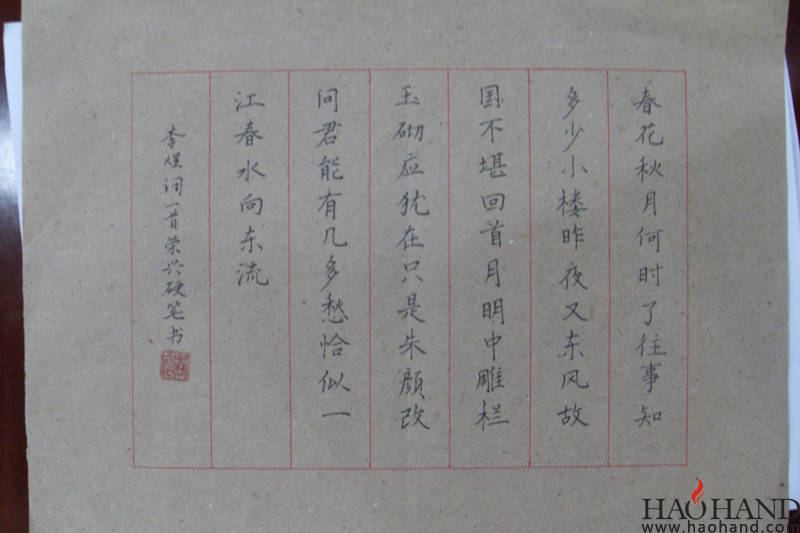 春花秋月何时了往事知
多少小楼昨夜又东风故
国不堪回首月明中雕栏
玉砌应犹在只是朱颜改
问君能有几多愁恰似一
江春水向东流
李煜词一首荣兴硬笔书
HAOHAND
www.haohand.com